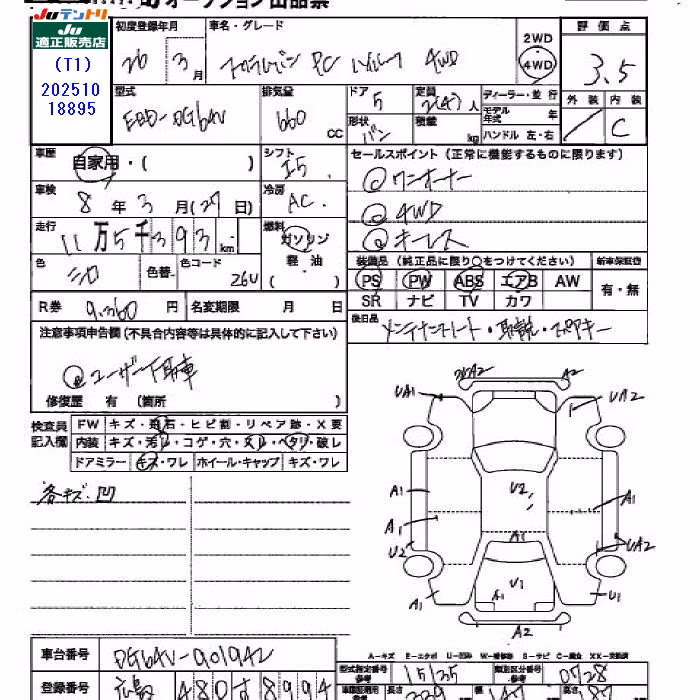 オークション出品票
Juテントリ
Ju
適正販売店
(T1)
202510
18895
初度登録年月 車名・グレード
26年 3月 PC ハイルーフ 4WD
2WD
4WD
評価点
3.5
型式 排気量 ドア 定員 ディーラー・並行
EBD-DG64V 660 CC 5 2(4)人
モデル年式 年
形状 バン 積載 kg ハンドル 左・右
外装 内装
C
車歴 自家用・( ) シフト I5
セールスポイント (正常に機能するものに限ります)
◎ワンオーナー
車検 8年 3月(27日) 冷房 AC
◎4WD
走行 11万5千393km 燃料 ガソリン
◎キーレス
軽油
( )
装備品 (純正品に限り○をつけてください) 新車保証書
色 シロ 色替 色コード 26U
PS PW ABS エアB AW 有・無
SR ナビ TV カワ
R券 9,360円 名変期限 月 日
後日品 メンテナンスノート・取説・スペアキー
注意事項申告欄 (不具合内容等は具体的に記入して下さい)
◎ユーザー下取車
修復歴 有 (箇所 )
検査員記入欄
FW キズ・飛石・ヒビ割・リペア跡・X要
内装 キズ・汚レ・コゲ・穴・スレ・ヘタリ・破レ
ドアミラー キズ・ワレ ホイール・キャップ キズ・ワレ
各キズ、凹
A2
A2
UA1
UA2
A1
U2
A1
A1
A1
U2
UA2
U1
A1
A1
U1
A2
A-キズ E-エクボ U-凹み W-補修跡 S-サビ C-腐食 XX-交換済
車台番号 DG64V-901942
型式指定番号 参考 15135 類別区分番号 参考 0728
登録番号 広島 480 す 8994
長さ 339